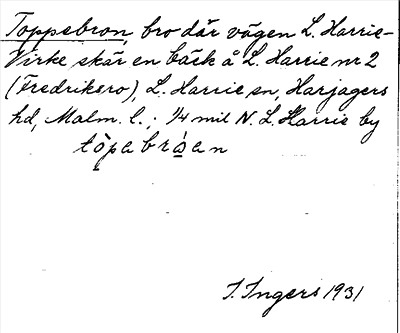 Toppebron, bro där vägen L. Harrie-
Virke skär en bäck å L. Harrie nr 2
(Fredrikero), L. Harrie sn, Harjagers
hd, Malm. l.; ¼ mil N. L. Harrie by
I. Ingers 1931